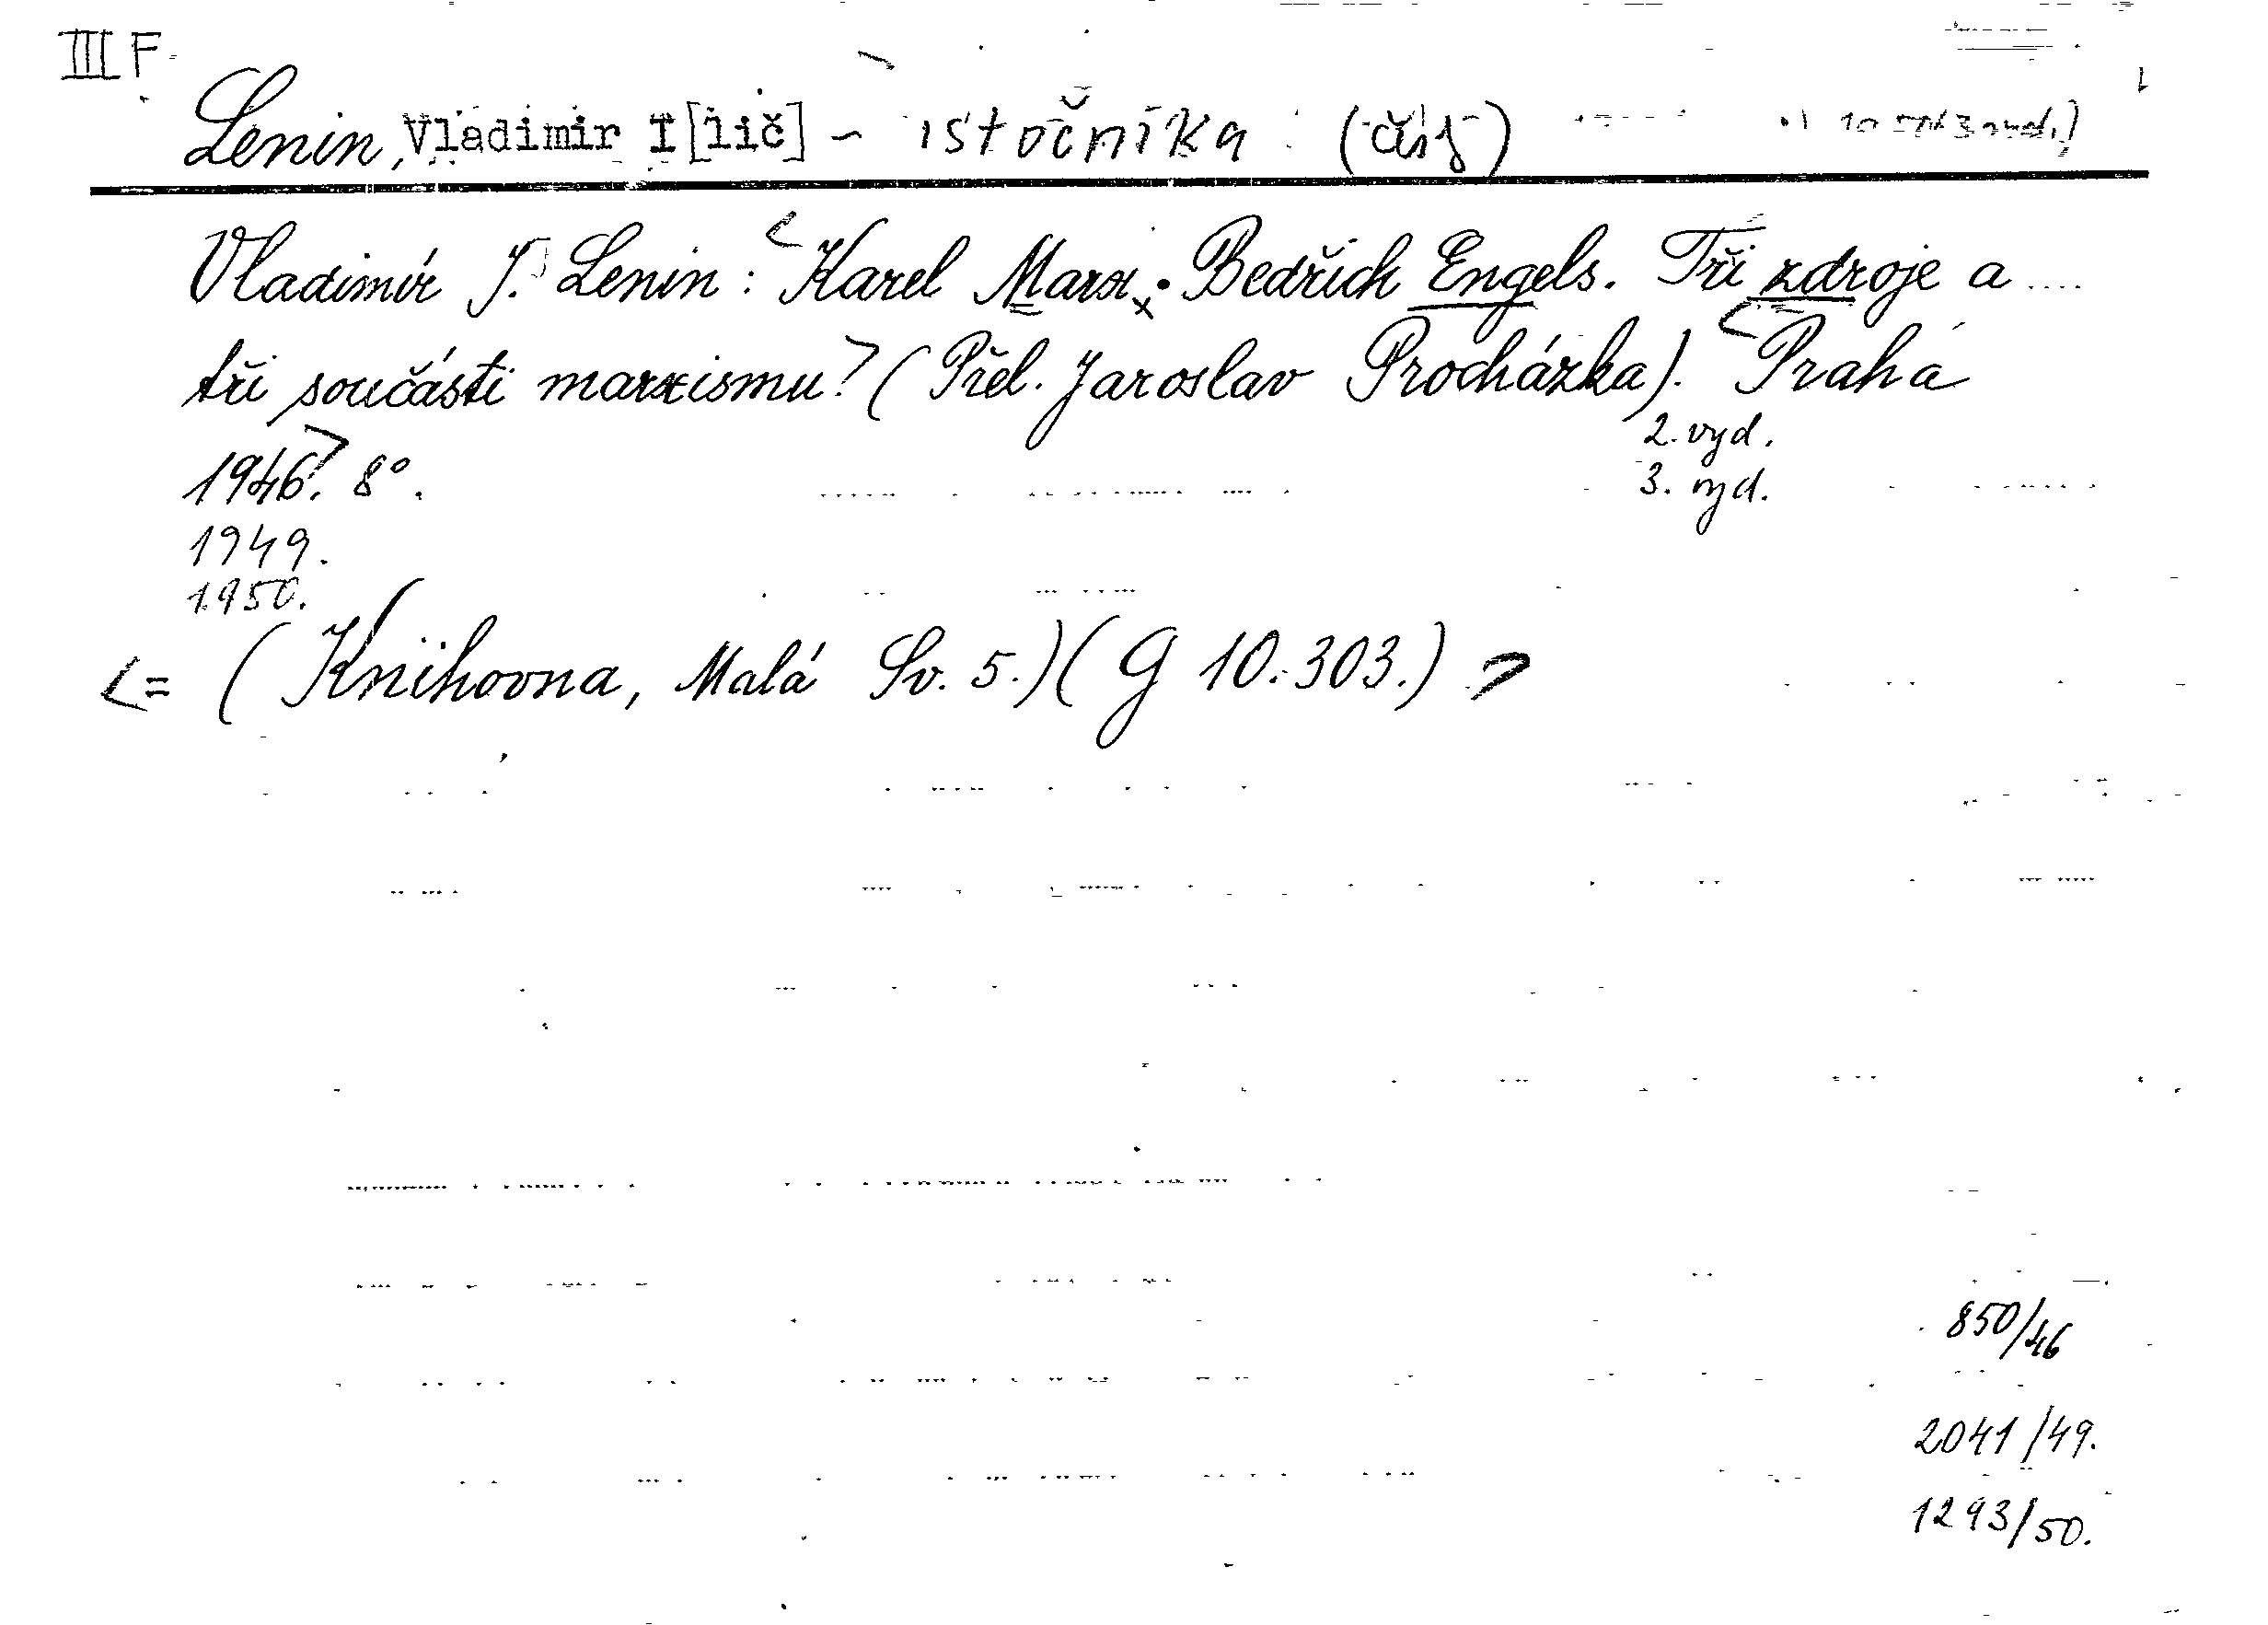 III F
Lenin, Vladimir I[lič] – istočnika (čes)
Vladimír J. Lenin: <Karel Marx. Bedřich Engels. Tři zdroje a
tři součásti marxismu.> (Přel. Jaroslav Procházka). <Praha
2. vyd.
1946.> 8°.
3. vyd.
1949.
1950.
<= (Knihovna, Malá Sv. 5.) (G 10.303.) >
850/46
2041/49.
1293/50.